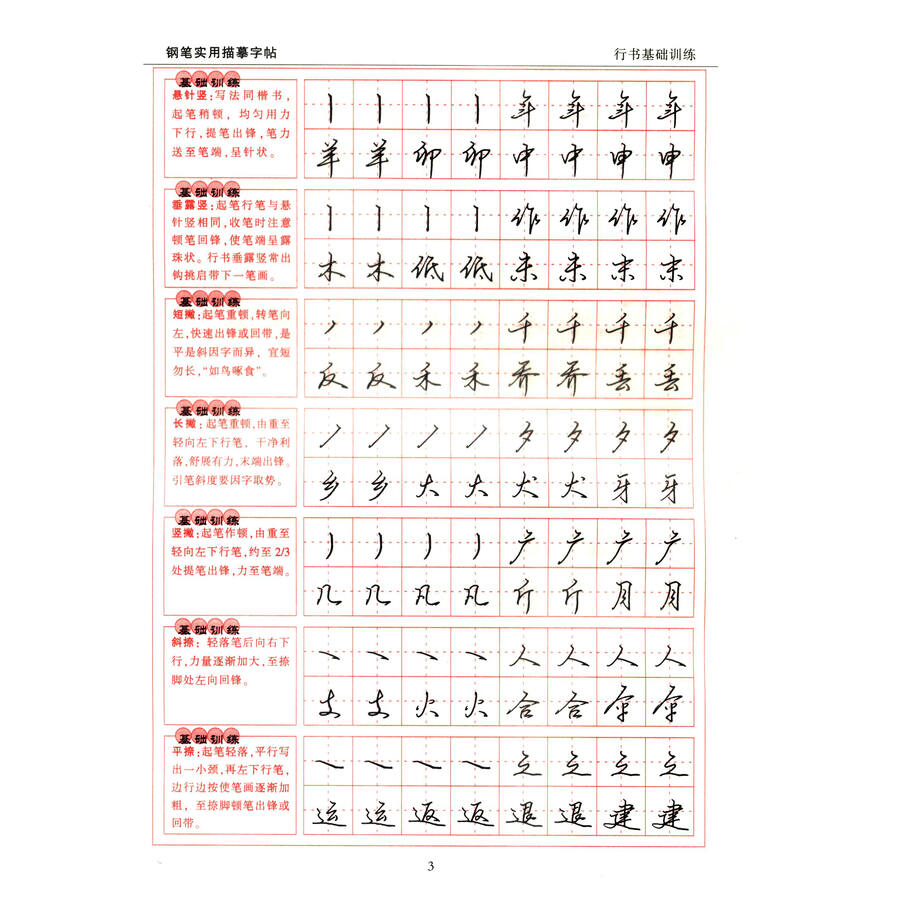 钢笔实用描摹字帖
行书基础训练
基础训练
悬针竖:写法同楷书,
起笔稍顿，均匀用力
下行,提笔出锋,笔力
送至笔端,呈针状。
丨 丨 丨 丨 年 年 年 年
羊 羊 卯 卯 中 中 申 申
基础训练
垂露竖:起笔行笔与悬
针竖相同,收笔时注意
顿笔回锋,使笔端呈露
珠状。行书垂露竖常出
钩挑启带下一笔画。
丨 丨 丨 丨 作 作 作 作
木 木 低 低 末 末 末 末
基础训练
短撇:起笔重顿,转笔向
左,快速出锋或回带,是
平是斜因字而异，宜短
勿长,“如鸟啄食”。
丿 丿 丿 丿 千 千 千 千
反 反 禾 禾 乔 乔 丢 丢
基础训练
长撇:起笔重顿,由重至
轻向左下行笔、干净利
落,舒展有力,末端出锋。
引笔斜度要因字取势。
丿 丿 丿 丿 夕 夕 夕 夕
乡 乡 大 大 犬 犬 牙 牙
基础训练
竖撇:起笔作顿,由重至
轻向左下行笔,约至 2/3
处提笔出锋,力至笔端。
丿 丿 丿 丿 户 户 户 户
几 几 凡 凡 斤 斤 月 月
基础训练
斜捺：轻落笔后向右下
行,力量逐渐加大,至捺
脚处左向回锋。
㇏ ㇏ ㇏ ㇏ 人 人 人 人
支 支 火 火 合 合 伞 伞
基础训练
平捺:起笔轻落,平行写
出一小颈,再左下行笔,
边行边按使笔画逐渐加
粗，至捺脚顿笔出锋或
回带。
㇏ ㇏ ㇏ ㇏ 之 之 之 之
运 运 返 返 退 退 建 建
3